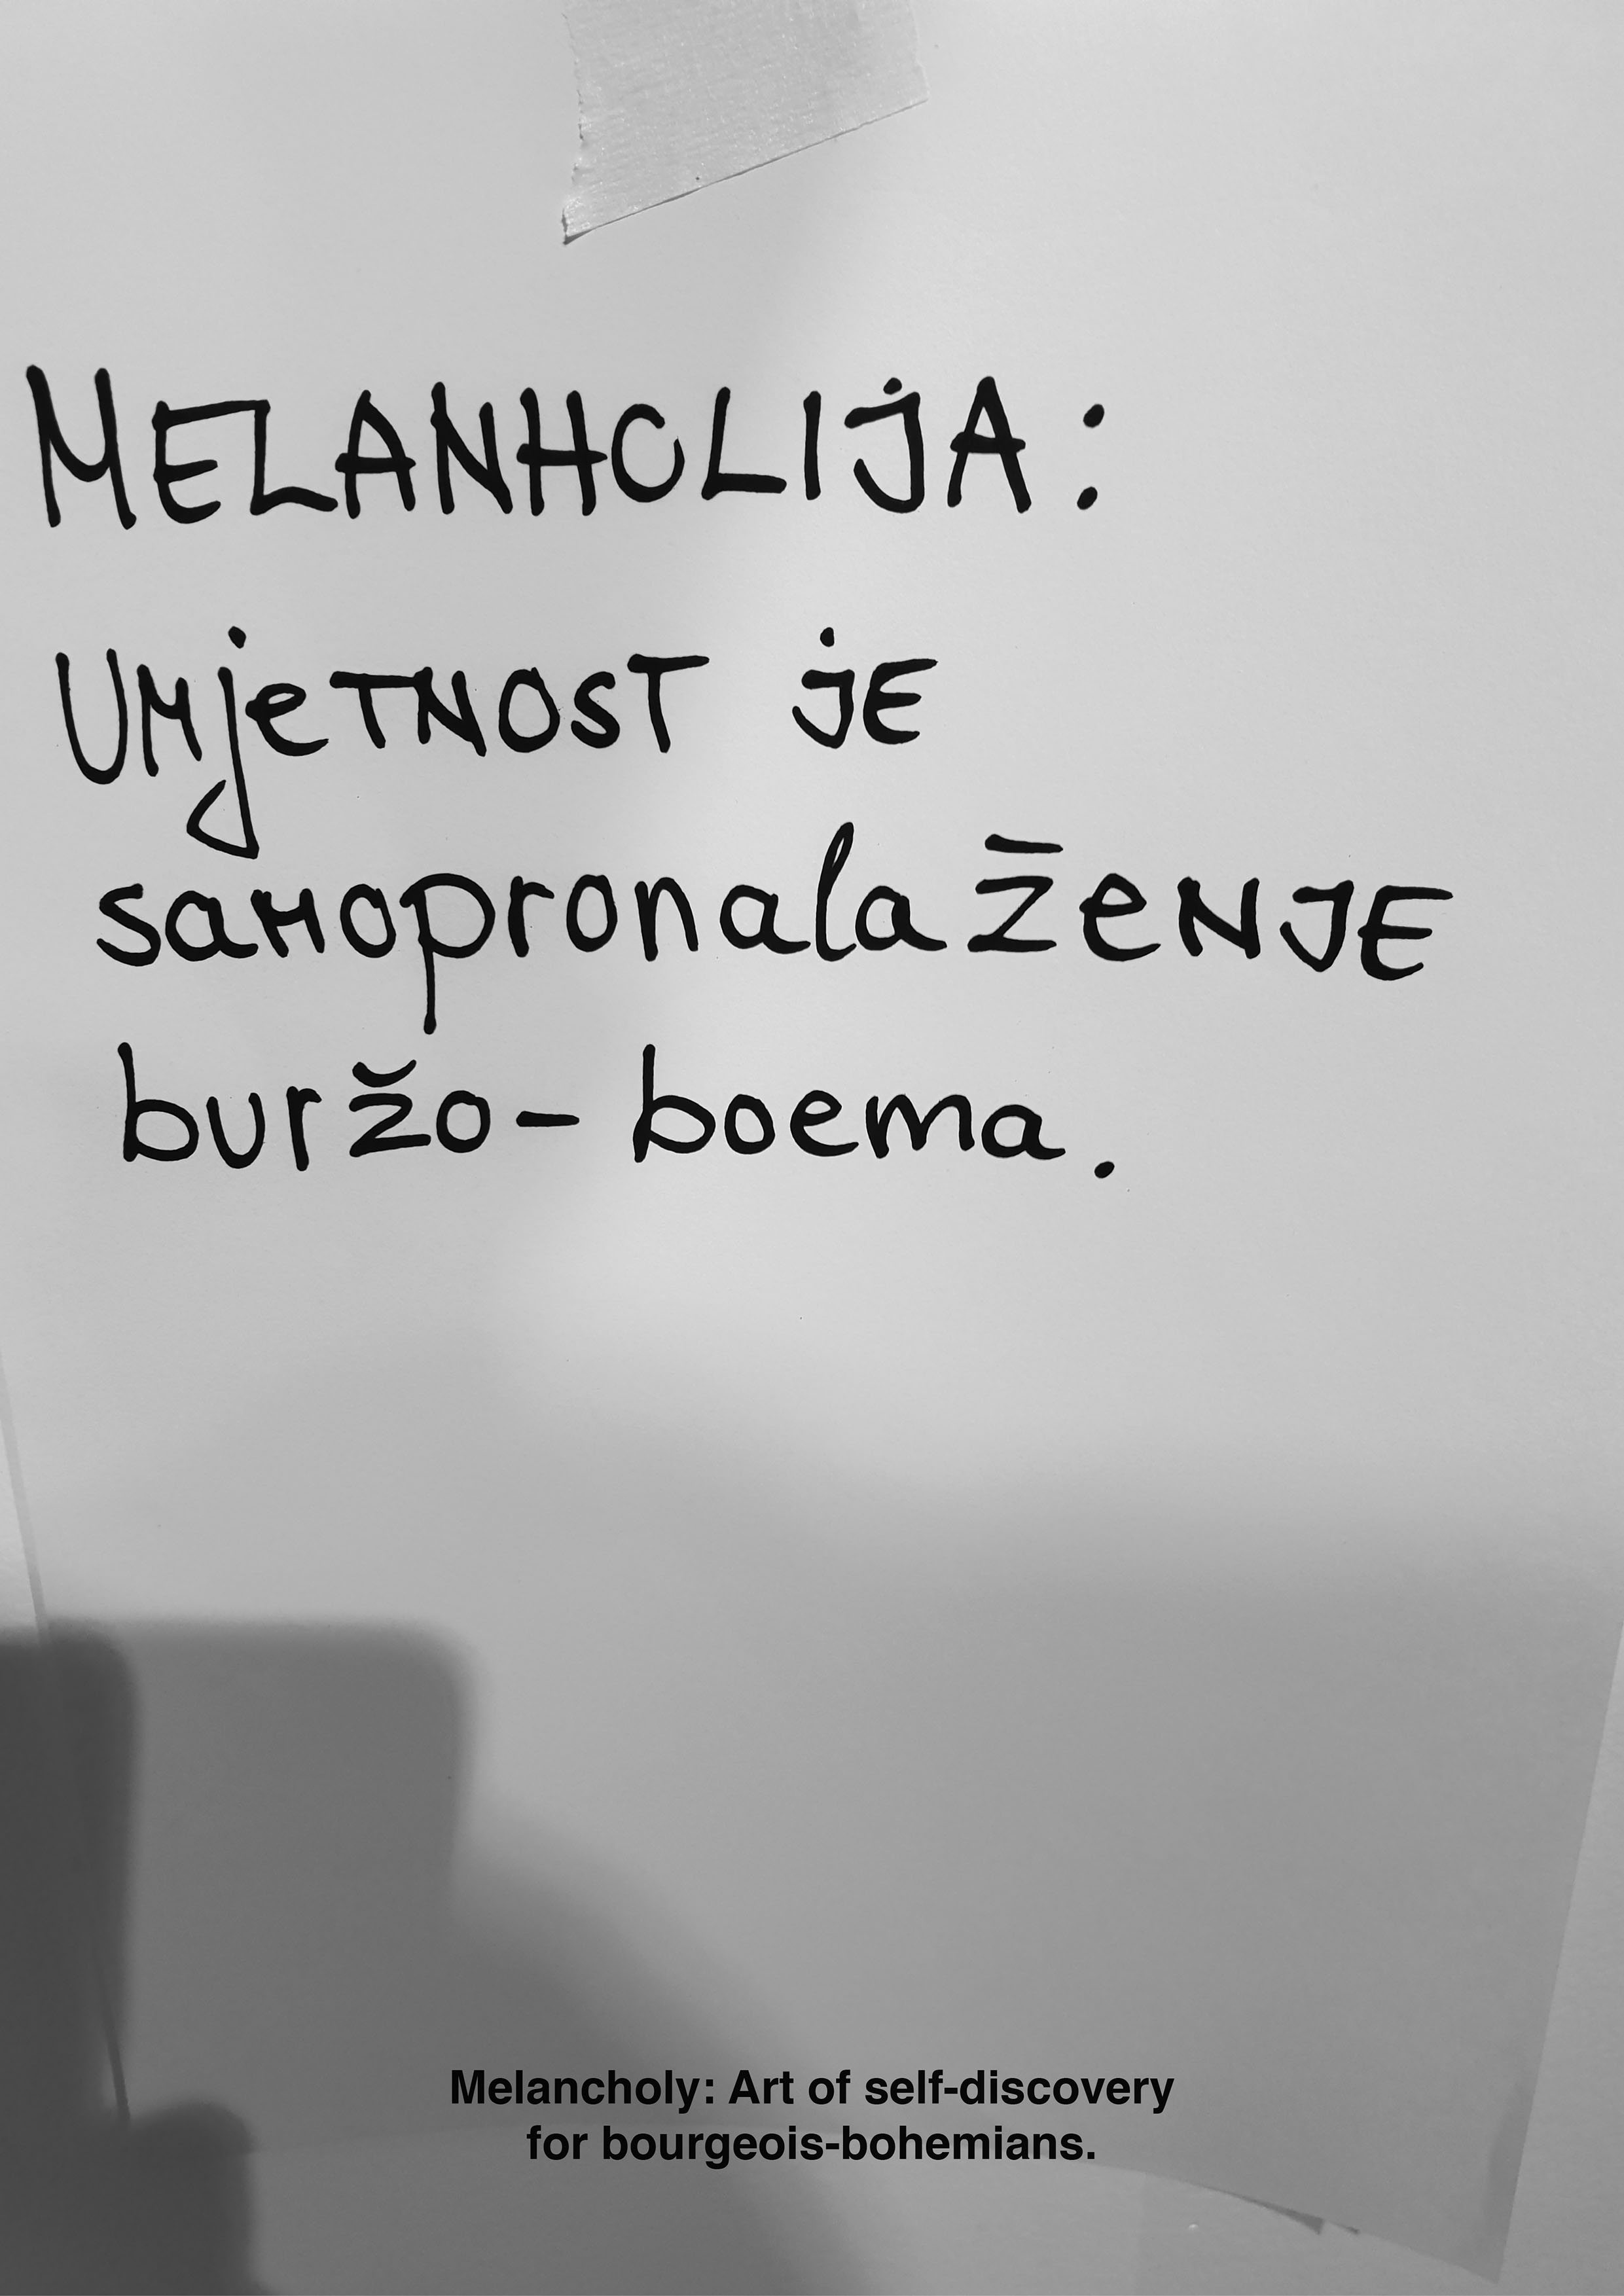 MELANHOLIJA:
UMjeTNOST jE
samopronalaženJE
buržo- boema.
Melancholy: Art of self-discovery
for bourgeois-bohemians.